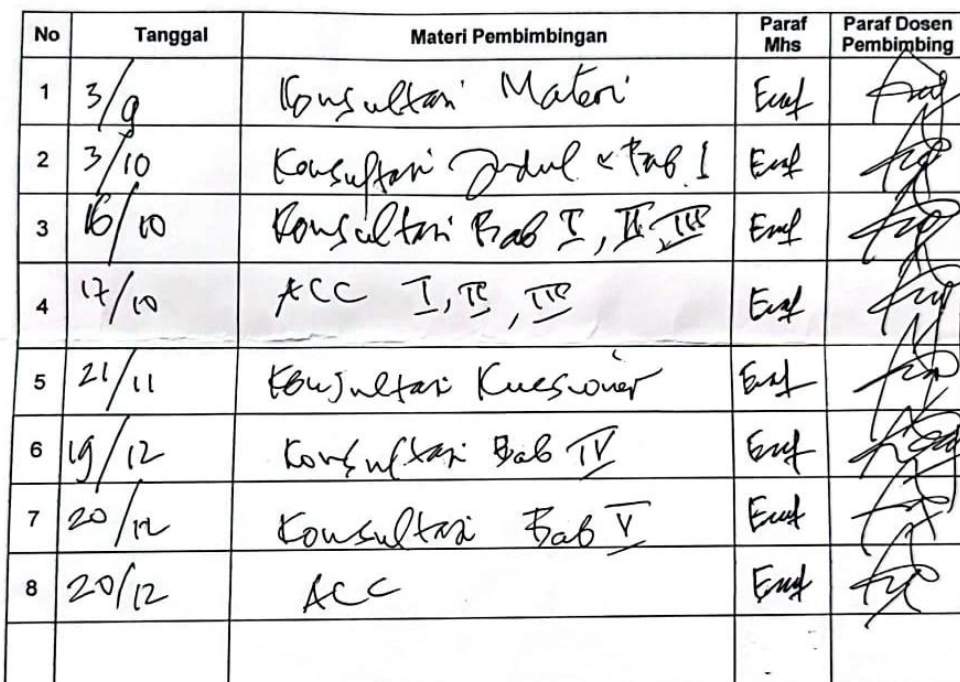 No Tanggal Materi Pembimbingan Paraf Mhs Paraf Dosen Pembimbing
1 3/9 Konsultasi Materi
2 3/10 Konsultasi Judul & Bab I
3 16/10 Konsultasi Bab I, II, III
4 17/10 ACC I, II, III
5 21/11 Konsultasi Kuesioner
6 19/12 Konsultasi Bab IV
7 20/12 Konsultasi Bab V
8 20/12 ACC